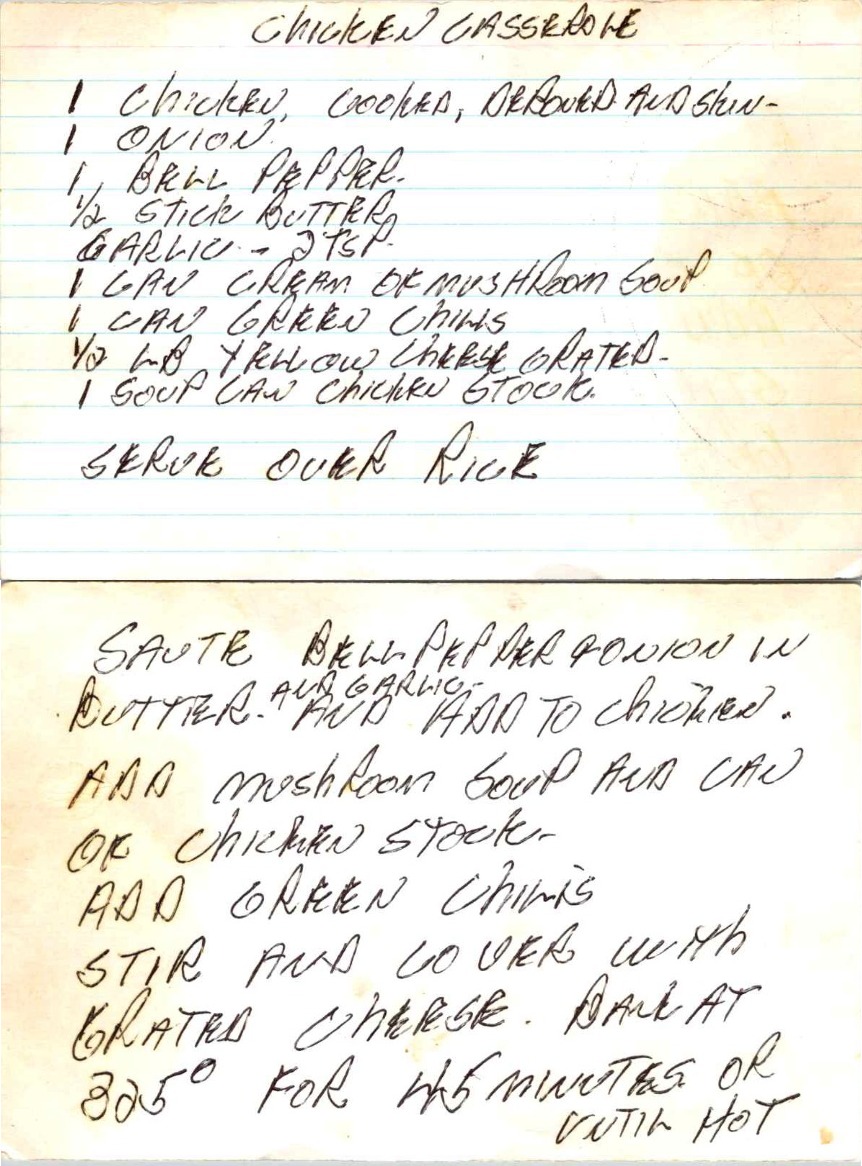 CHICKEN CASSEROLE
1 CHICKEN, COOKED, DEBONED AND SKIN-
1 ONION.
1, BELL PEPPER.
1/2 STICK BUTTER
GARLIC - 2 TSP.
1 CAN CREAM OF MUSHROOM SOUP
1 CAN GREEN CHILIS
1/2 LB YELLOW CHEESE GRATED-
1 SOUP CAN CHICKEN STOCK.
SERVE OVER RICE
SAUTE BELL PEPPER & ONION IN
AND GARLIC-
BUTTER. AND ADD TO CHICKEN.
ADD MUSHROOM SOUP AND CAN
OF CHICKEN STOCK-
ADD GREEN CHILIS
STIR AND COVER WITH
GRATED CHEESE. BAKE AT
325° FOR 45 MINUTES OR
UNTIL HOT